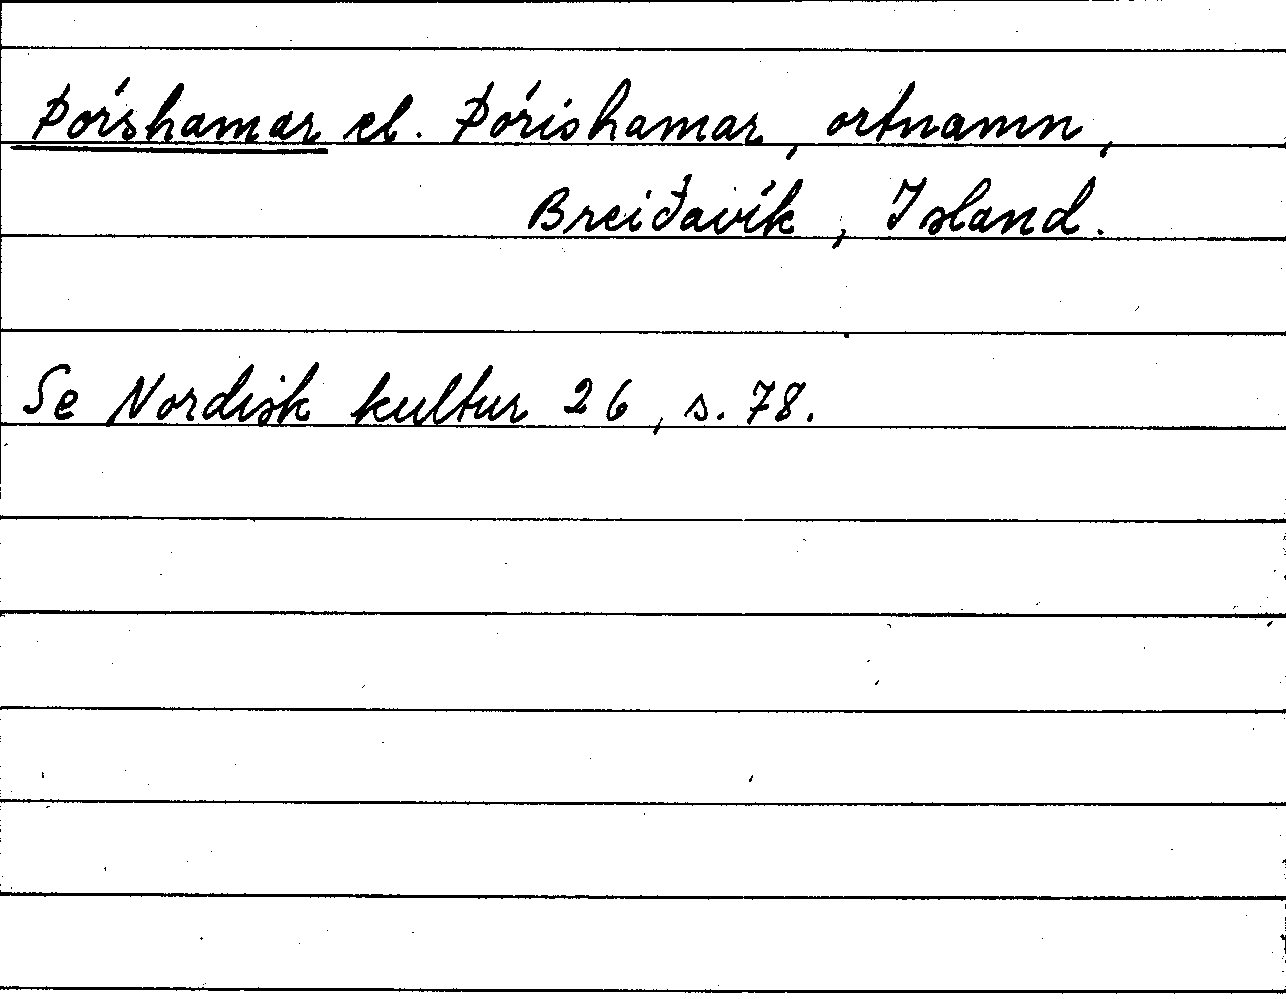 Þórshamar el. Þórishamar, ortnamn,
Breiðavík, Island.
Se Nordisk kultur 26, s. 78.